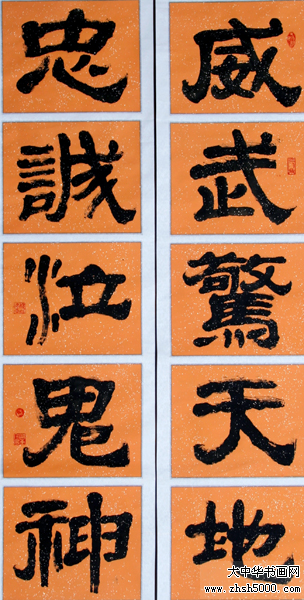 威武驚天地
忠誠泣鬼神
大中华书画网
www.zhsh5000.com